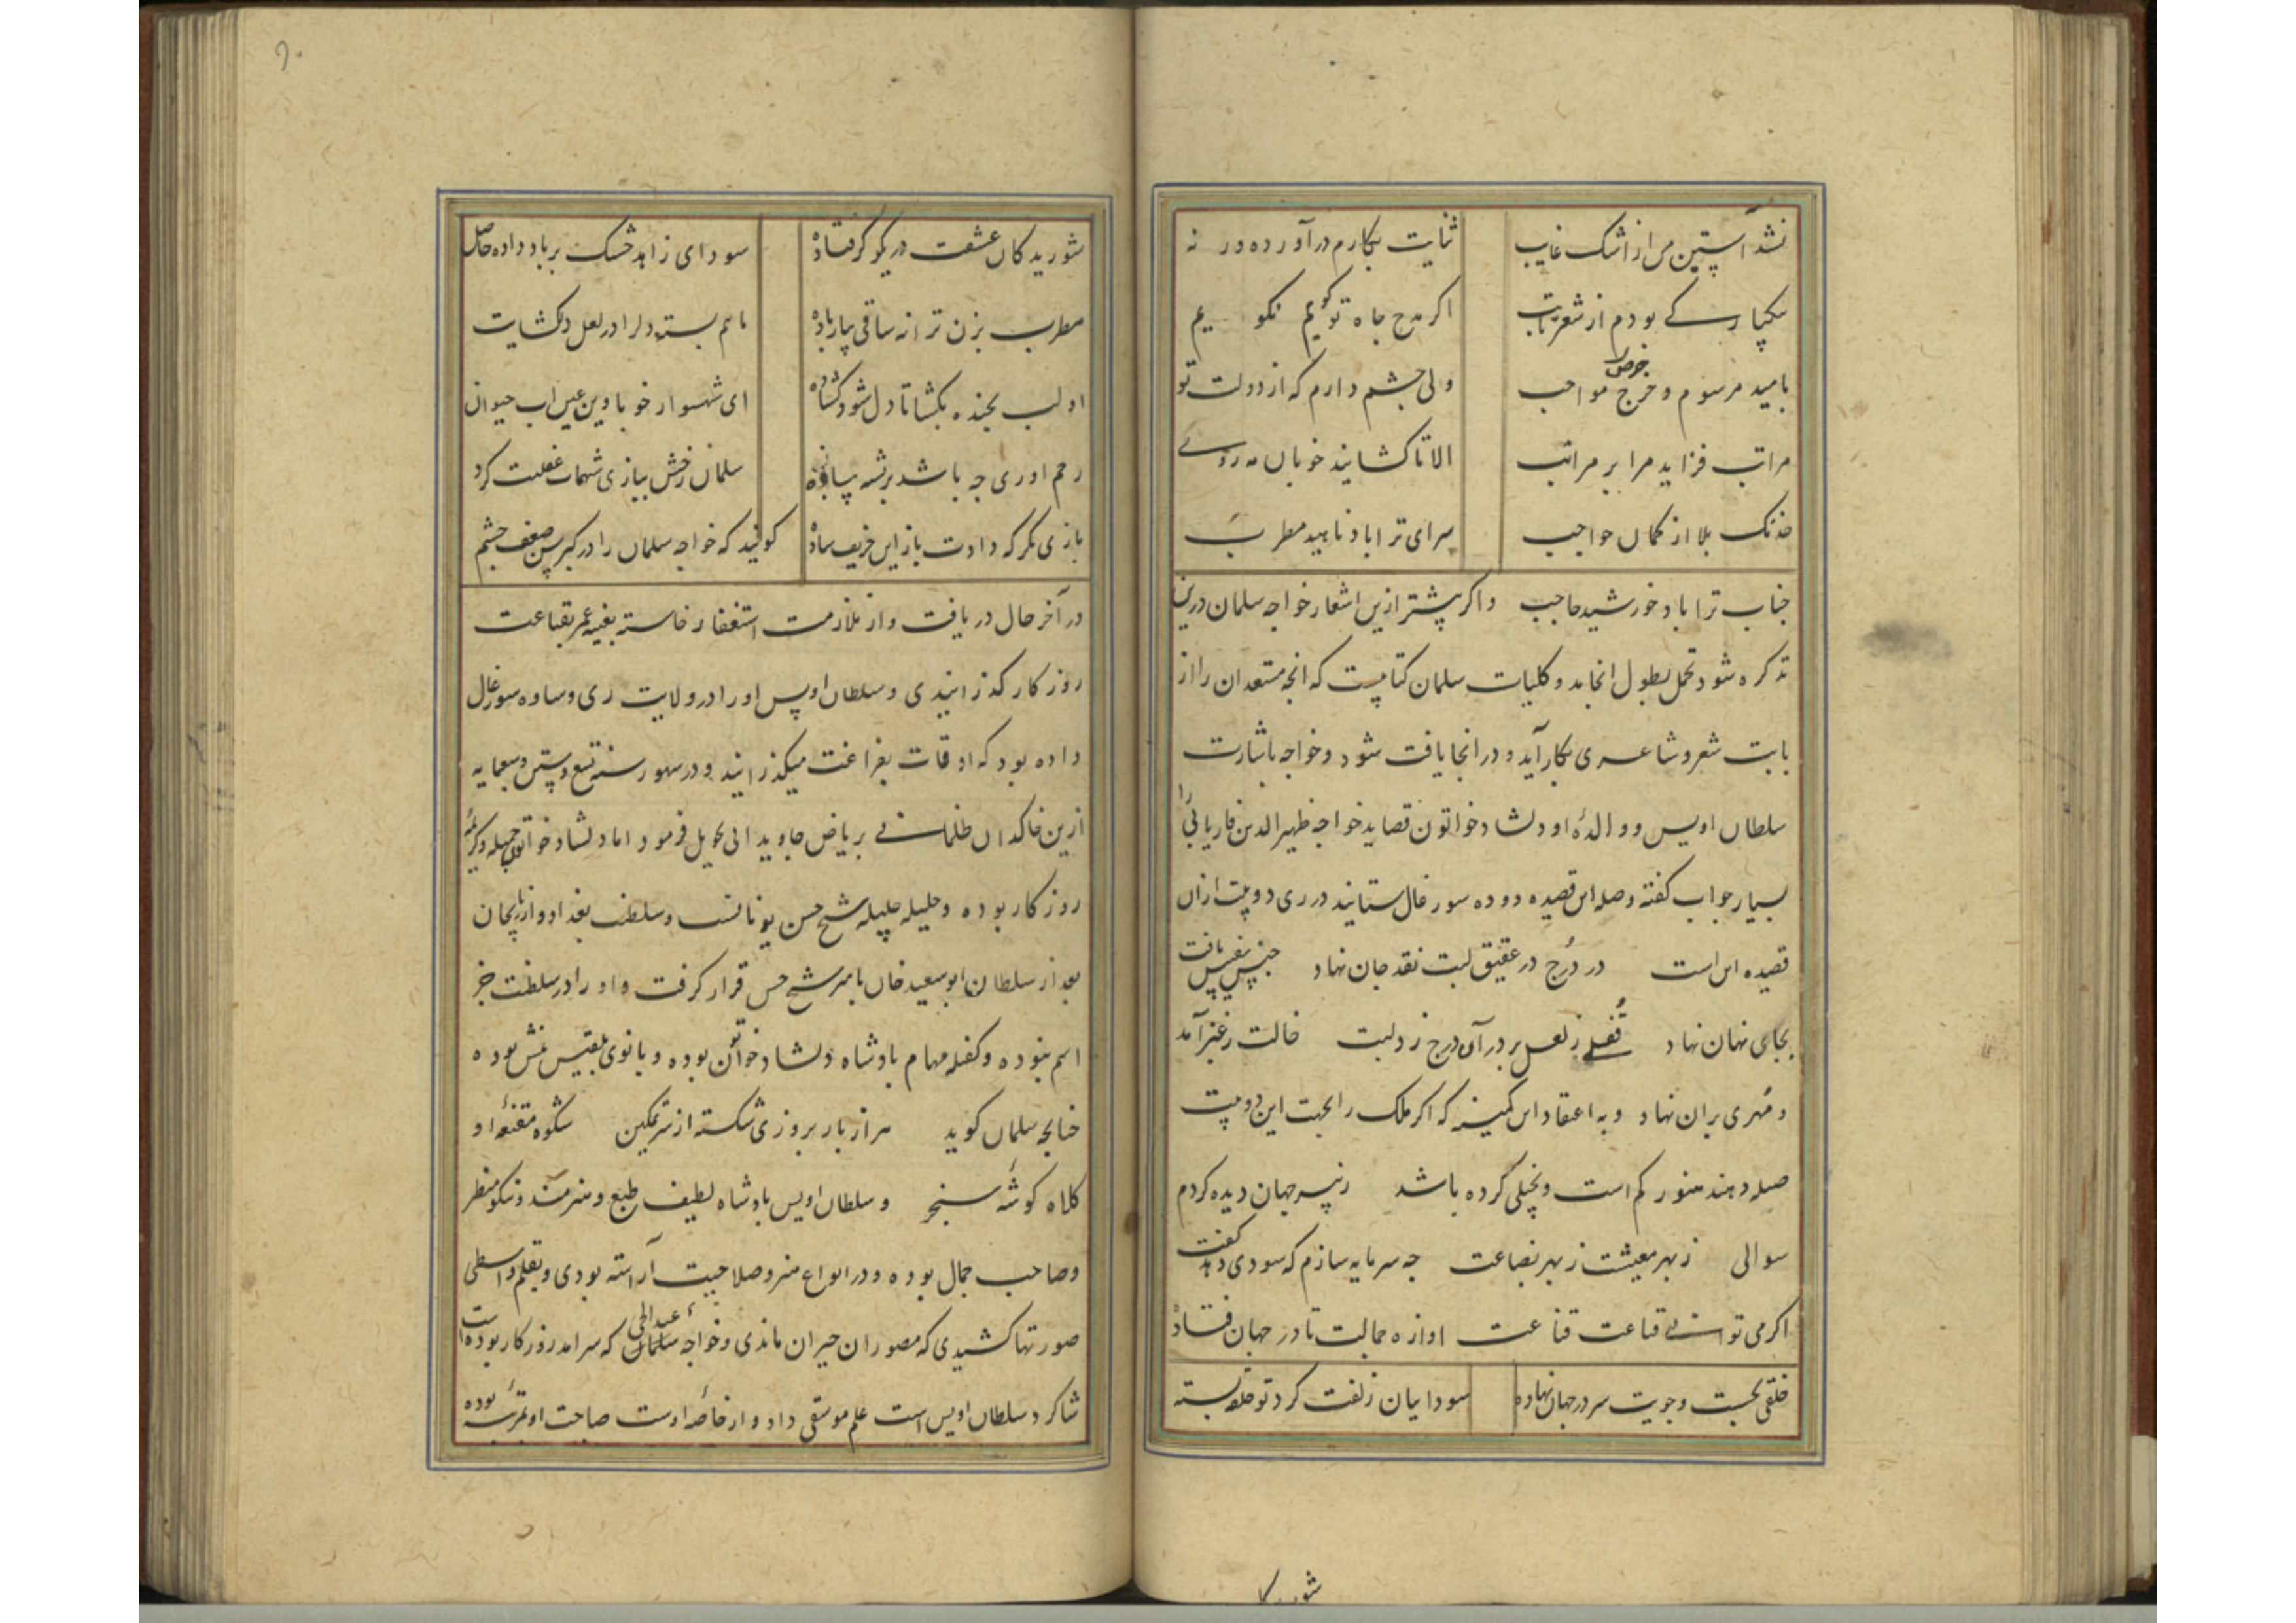 نشد آستین من از اشک غایب ثنایت بکارم درآورده ورنه
یکبارکی بودم از شعر تایب اکر مدح جاه تو کویم نکویم
بامید مرسوم و خرج مواجب ولی چشم دارم که از دولت تو
مراتب فزاید مرا بر مراتب الا تا کشایند خوبان مه روی
خدنک بلا از کمان حواجب سرای ترا باد ناهید مطرب
جناب ترا باد خورشید حاجب واکر پیشتر ازین اشعار خواجه سلمان درین
تذکره شود تحمل بطول انجامد و کلیات سلمان کتابیست که انچه مستعدان را از
بابت شعر و شاعری بکار آید و در انجا یافت شود و خواجه باشارت
سلطان اویس و والدۀ او دلشاد خواتون قصاید خواجه ظهیرالدین فاریابی را
بسیار جواب کفته و صله این قصیده دو ده سورغال ستانید در ری دو بیت از ان
قصیده این است در درج در عقیق لبت نقد جان نهاد جنس نفیس یافت
بجای نهان نهاد قفلی ز لعل بر در آن درج زد لبت خالت ز عنبر آمد
و مهری بران نهاد و به اعتقاد این کمینه که اکر ملک را بجهت این دو بیت
صله دهند هنوز کم است و بخیلی کرده باشد ز پیر جهان دیده کردم
سوالی ز بهر معیشت ز بهر بضاعت چه سرمایه سازم که سودی دهد کفت
اکر می توانی قناعت قناعت اوازه جمالت تا در جهان فتاد
خلقی بجست وجویت سر در جهان نهاده سودایان زلفت کرد تو حلقه بسته
شور
شوریدکان عشقت در یکوکر فتاده سودای زاهد خشک بر باد داده حاصل
مطرب بزن ترانه ساقی بیار باده ما هم بسته دلرا در لعل دلکشایت
او لب بخنده بکشا تا دل شود کشاده ای شهسوار خوبا وین عین اب حیوان
رحم اوری چه باشد بر تشنه پیاده سلمان زخش ببازی شهمات غفلت کرد
بازی نکر که دادت باز این حریف ساده کویند که خواجه سلمان را در کبر سن ضعف چشم
در آخر حال دریافت و از ملازمت استغفار خاسته بقیه عمر بقناعت
روزکار کذرانیدی و سلطان اویس او را در ولایت ری و ساوه سورغال
داده بود که اوقات بفراغت میکذرانید و در سهور سنه تسع وستین وسبعمایه
ازین خاکدان ظلمانی بریاض جاویدانی تحویل فرمود اما دلشاد خواتون جمیله و کریمۀ
روزکار بوده و حلیله جلیله شیخ حسن یونانست و سلطنت بغداد و اذربایجان
بعد از سلطان ابوسعید خان بامیر شیخ حسن قرار کرفت و او را در سلطنت جز
اسم نبوده و کفله مهام پادشاه دلشاد خواتون بوده و بانوی بلقیس منش بوده
چنانچه سلمان کوید هزار بار بروزی شکسته از سر تمکین شکوه مقنعۀ او
کلاه کوشۀ سنجر و سلطان اویس پادشاه لطیف طبع و هنرمند و نیکو منظر
وصاحب جمال بوده و در انواع هنر و صلاحیت آراسته بودی و بقلم واسطی
صورتها کشیدی که مصوران حیران ماندی و خواجه عبدالحی که سرامد روزکار بوده است
شاکرد سلطان اویس است علم موسقی داد و ار خاصۀ اوست صاحت او بمرتبۀ بوده